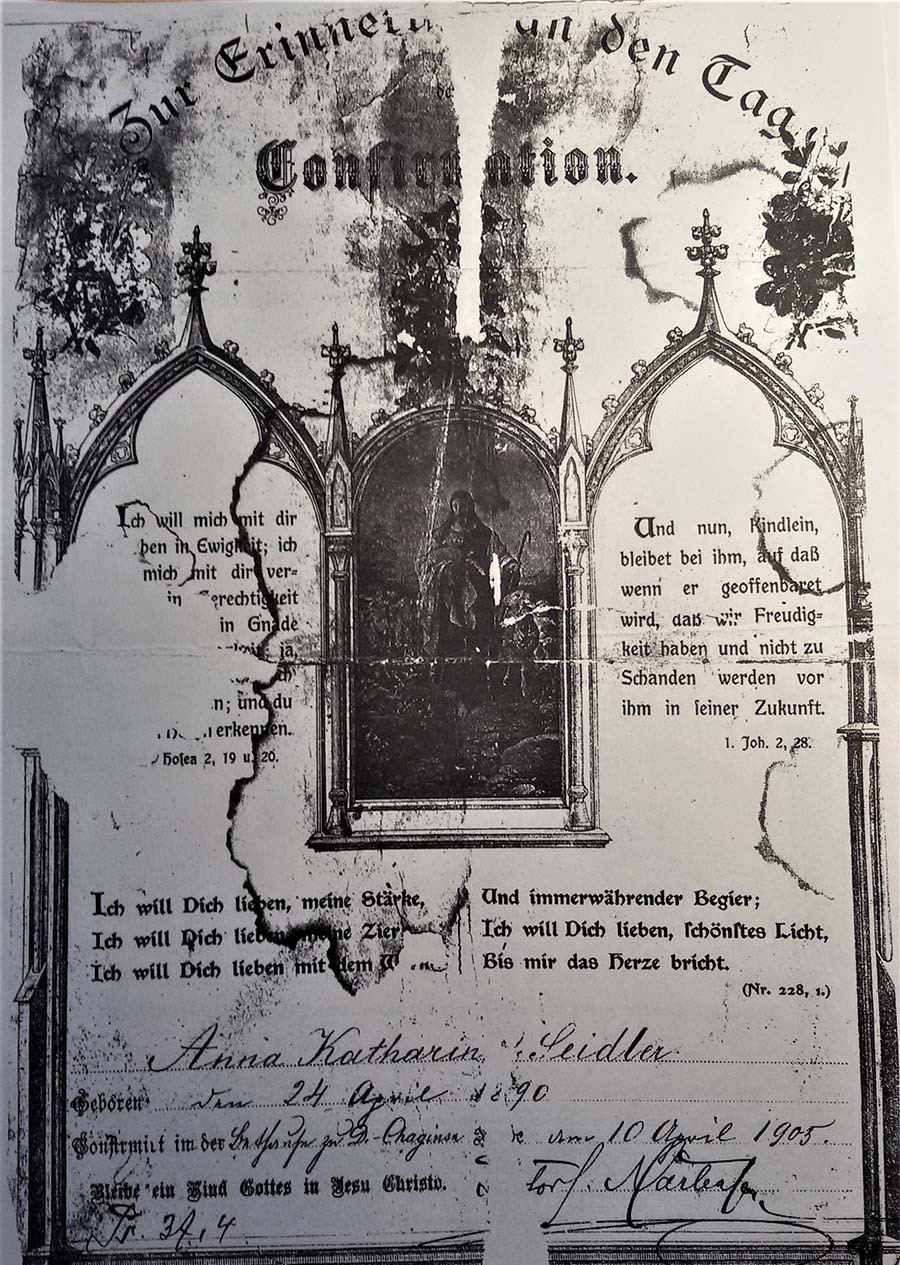 Zur Erinner an den Tag
Confirmation.
Ich will mich mit dir
ben in Ewigkeit; ich
mich mit dir ver-
in erechtigkeit
in Gnade
ja,
ch
n; und du
erkennen.
Hosea 2, 19 u. 20.
Und nun, Kindlein,
bleibet bei ihm, auf daß
wenn er geoffenbaret
wird, daß wir Freudig-
keit haben und nicht zu
Schanden werden vor
ihm in seiner Zukunft.
1. Joh. 2, 28.
Ich will Dich lieben, meine Stärke,
Ich will Dich lieben, meine Zier
Ich will Dich lieben mit dem
Und immerwährender Begier;
Ich will Dich lieben, schönstes Licht,
Bis mir das Herze bricht.
(Nr. 228, 1.)
Anna Katharin Seidler.
Geboren den 24 April 1890
Confirmirt im der Bethause zu D.- am 10 April 1905.
Bleibe ein Kind Gottes in Jesu Christo.
34, 4